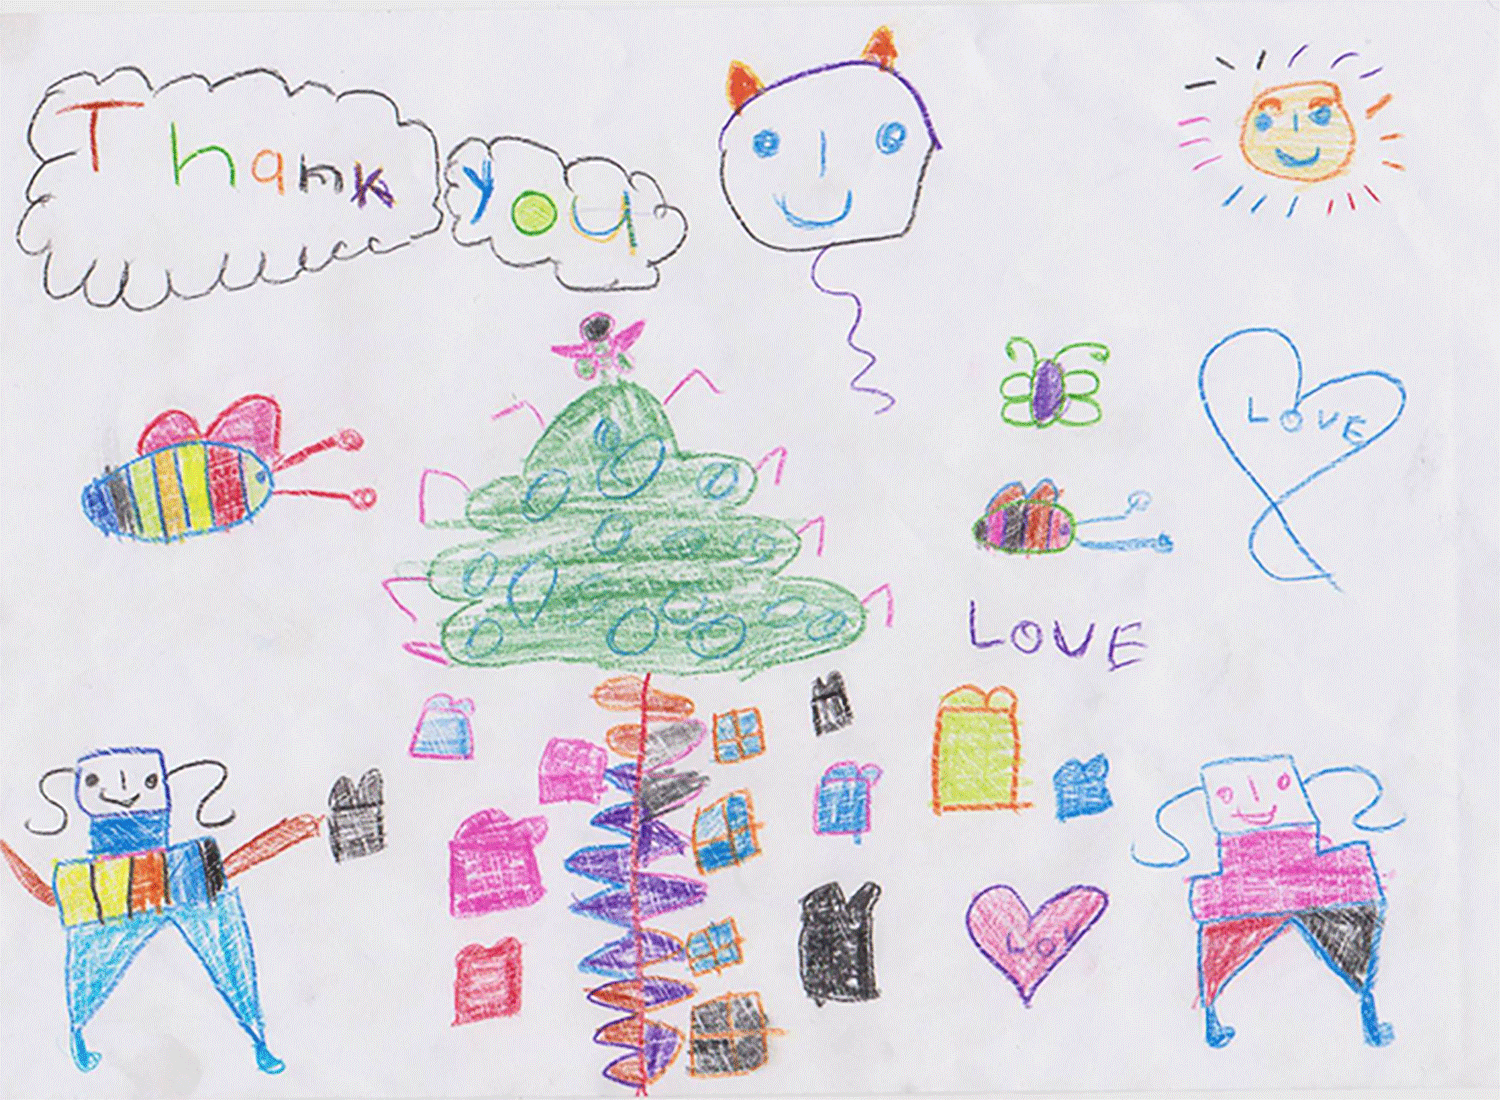 Thank
you
LOVE
LOVE
Lov